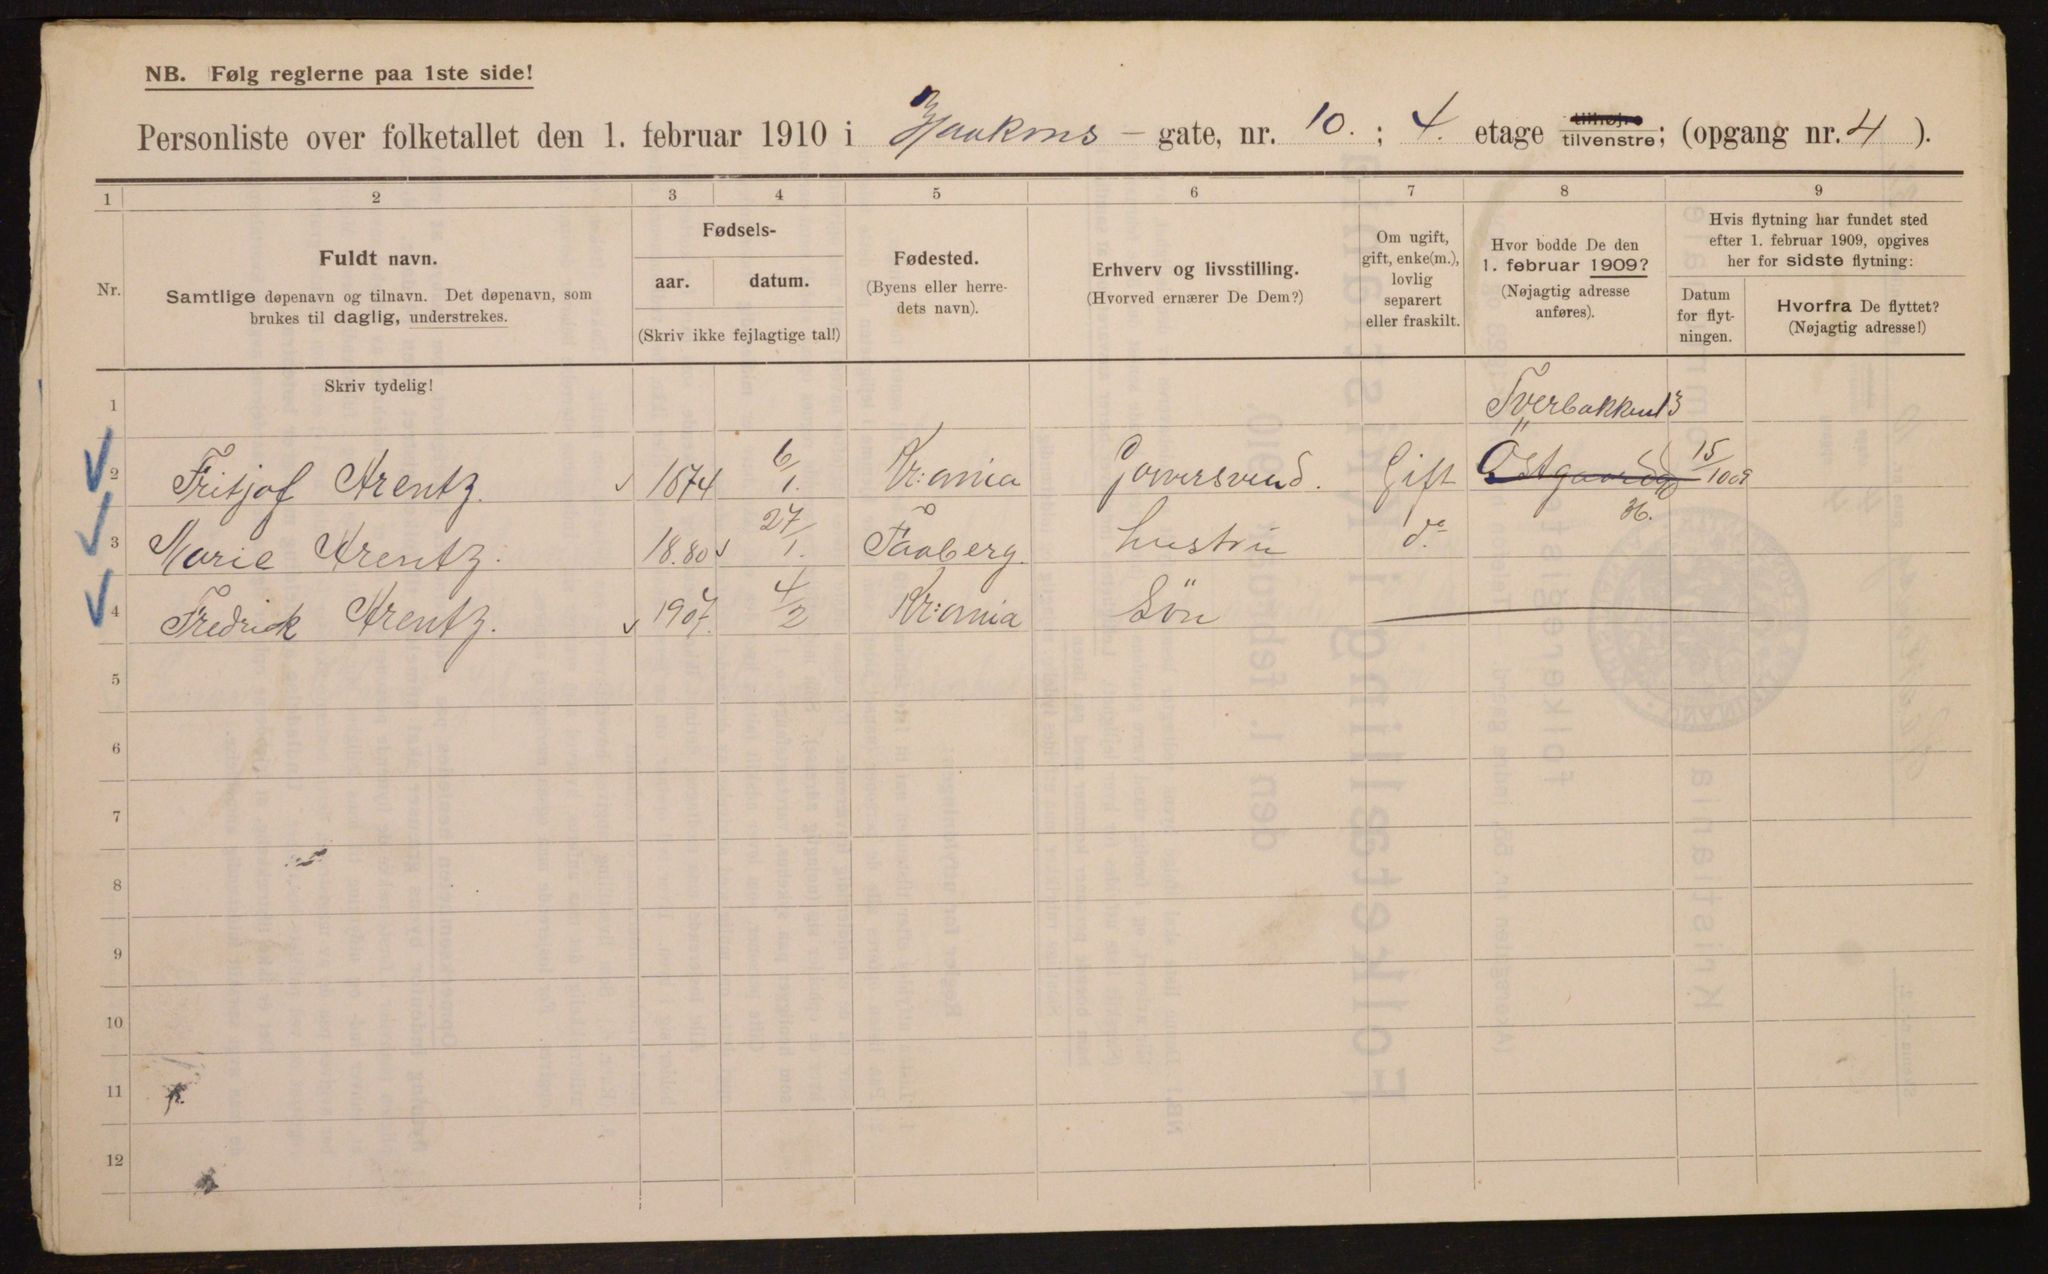 NB. Følg reglerne paa 1ste side!
Personliste over folketallet den 1. februar 1910 i Haakons – gate, nr. 10. ; 4. etage tilhøjre tilvenstre; (opgang nr. 4 ).
1 2 3 4 5 6 7 8 9
Nr.
Fuldt navn.
Samtlige døpenavn og tilnavn. Det døpenavn, som
brukes til daglig, understrekes.
Fødsels-
aar. datum.
(Skriv ikke fejlagtige tal!)
Fødested.
(Byens eller herre-
dets navn).
Erhverv og livsstilling.
(Hvorved ernærer De Dem?)
Om ugift,
gift, enke(m.),
lovlig
separert
eller fraskilt.
Hvor bodde De den
1. februar 1909?
(Nøjagtig adresse
anføres).
Hvis flytning har fundet sted
efter 1. februar 1909, opgives
her for sidste flytning:
Datum
for flyt-
ningen.
Hvorfra De flyttet?
(Nøjagtig adresse!)
Skriv tydelig!
1 Tverbakken 13
2 Fritjof Arentz. 1874 6/1. Kr:ania Gift Östgaardsg 36. 15/10 09
3 Marie Arentz. 18.80 27/1. Faaberg. hustru do
4 Fredrick Arentz. 1907. 4/2 Kr:ania Sön
5
6
7
8
9
10
11
12